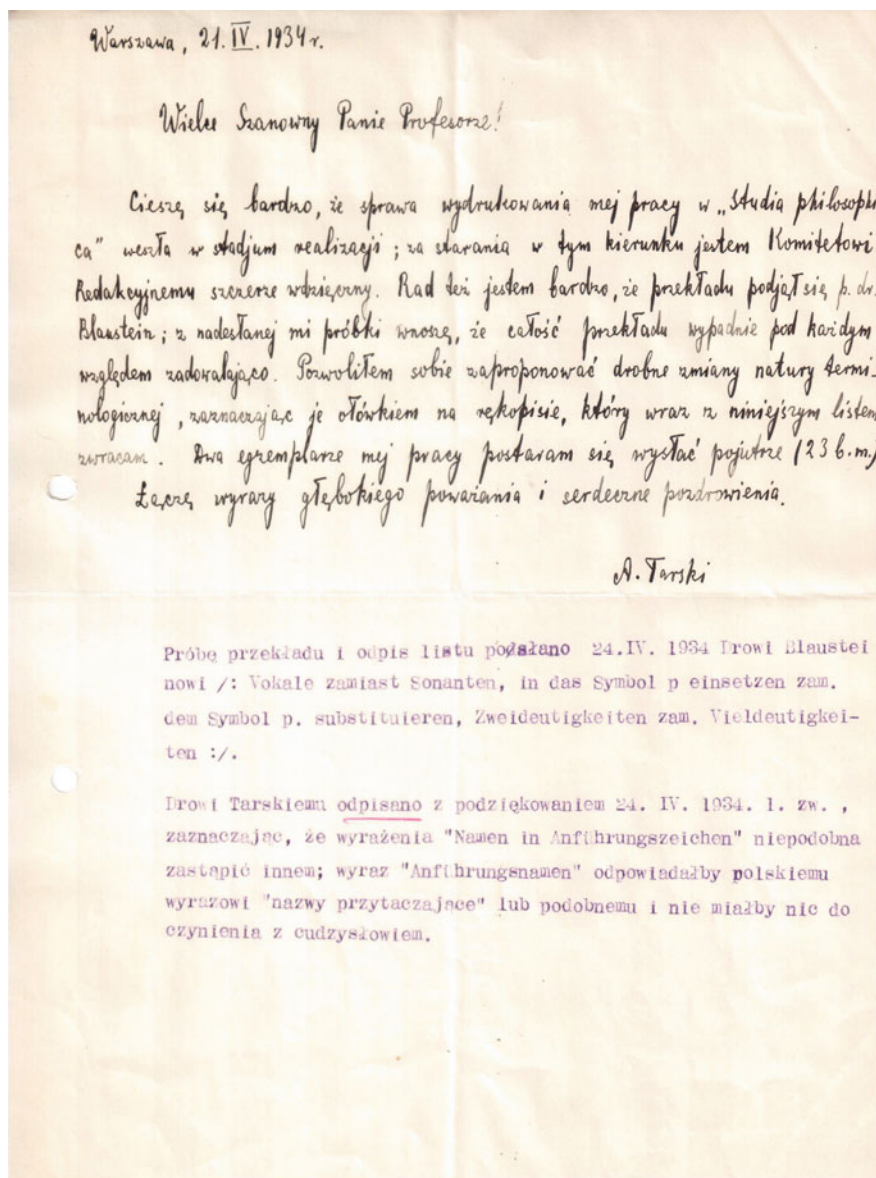 Warszawa, 21.IV.1934 r.
Wielce Szanowny Panie Profesorze!
Cieszę się bardzo, że sprawa wydrukowania mej pracy w „Studia philosophi
ca" weszła w stadjum realizacji; za starania w tym kierunku jestem Komitetowi
Redakcyjnemu szczerze wdzięczny. Rad też jestem bardzo, że przekładu podjął się p. dr.
Blaustein; z nadesłanej mi próbki wnoszę, że całość przekładu wypadnie pod każdym
względem zadowalająco. Pozwoliłem sobie zaproponować drobne zmiany natury termi-
nologicznej, zaznaczając je ołówkiem na rękopisie, który wraz z niniejszym listem
zwracam. Dwa egzemplarze mej pracy postaram się wysłać pojutrze (23 b.m.)
Łączę wyrazy głębokiego poważania i serdeczne pozdrowienia.
A. Tarski
Próbę przekładu i odpis listu posłano 24.IV. 1934 Drowi Blaustei
nowi /: Vokale zamiast Sonanten, in das Symbol p einsetzen zam.
dem Symbol p. substituieren, Zweideutigkeiten zam. Vieldeutigkei-
ten :/.
Drowi Tarskiemu odpisano z podziękowaniem 24. IV. 1934. l. zw. ,
zaznaczając, że wyrażenia "Namen in Anführungszeichen" niepodobna
zastąpić innem; wyraz "Anführungsnamen" odpowiadałby polskiemu
wyrazowi "nazwy przytaczające" lub podobnemu i nie miałby nic do
czynienia z cudzysłowiem.